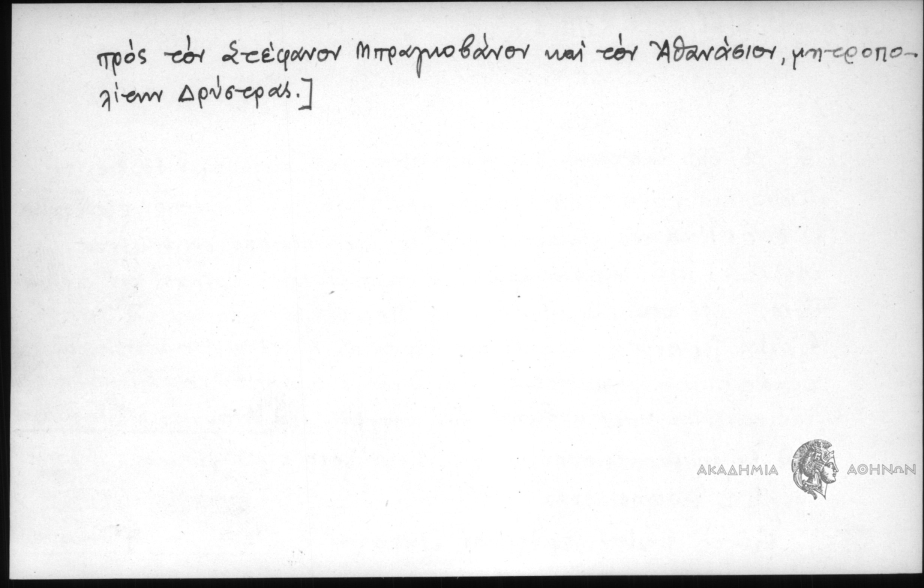 πρός τόν Στέφανον Μπραγκοβάνον καί τόν Ἀθανάσιον, μητροπο-
λίτην Δρύστρας.]
ΑΚΑΔΗΜΙΑ ΑΘΗΝΩΝ